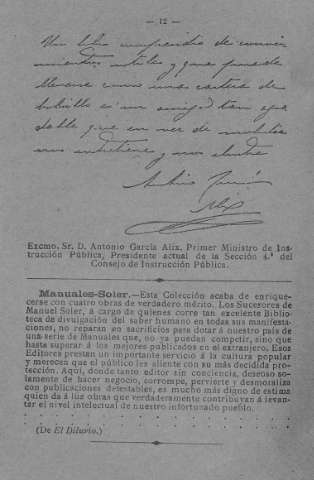 — 12 —
Un libro comprendido de conoci-
mientos utiles y que puede
llevarse como una cartera de
bolsillo es un amigo tan agra-
dable que en vez de molestar
nos entretiene y nos
Antonio García
Alix
Excmo. Sr. D. Antonio García Alix, Primer Ministro de Ins-
trucción Pública, Presidente actual de la Sección 4.ª del
Consejo de Instrucción Pública.
Manuales-Soler.—Esta Colección acaba de enrique-
cerse con cuatro obras de verdadero mérito. Los Sucesores de
Manuel Soler, á cargo de quienes corre tan excelente Biblio-
teca de divulgación del saber humano en todas sus manifesta-
ciones, no reparan en sacrificios para dotar á nuestro país de
una serie de Manuales que, no ya puedan competir, sino que
hasta superar á los mejores publicados en el extranjero. Esos
Editores prestan un importante servicio á la cultura popular
y merecen que el público les aliente con su más decidida pro-
tección. Aquí, donde tanto editor sin conciencia, deseoso so-
lamente de hacer negocio, corrompe, pervierte y desmoraliza
con publicaciones detestables, es mucho más digno de estima
quien da á luz obras que verdaderamente contribuyan á levan-
tar el nivel intelectual de nuestro infortunado pueblo.
(De El Diluvio.)